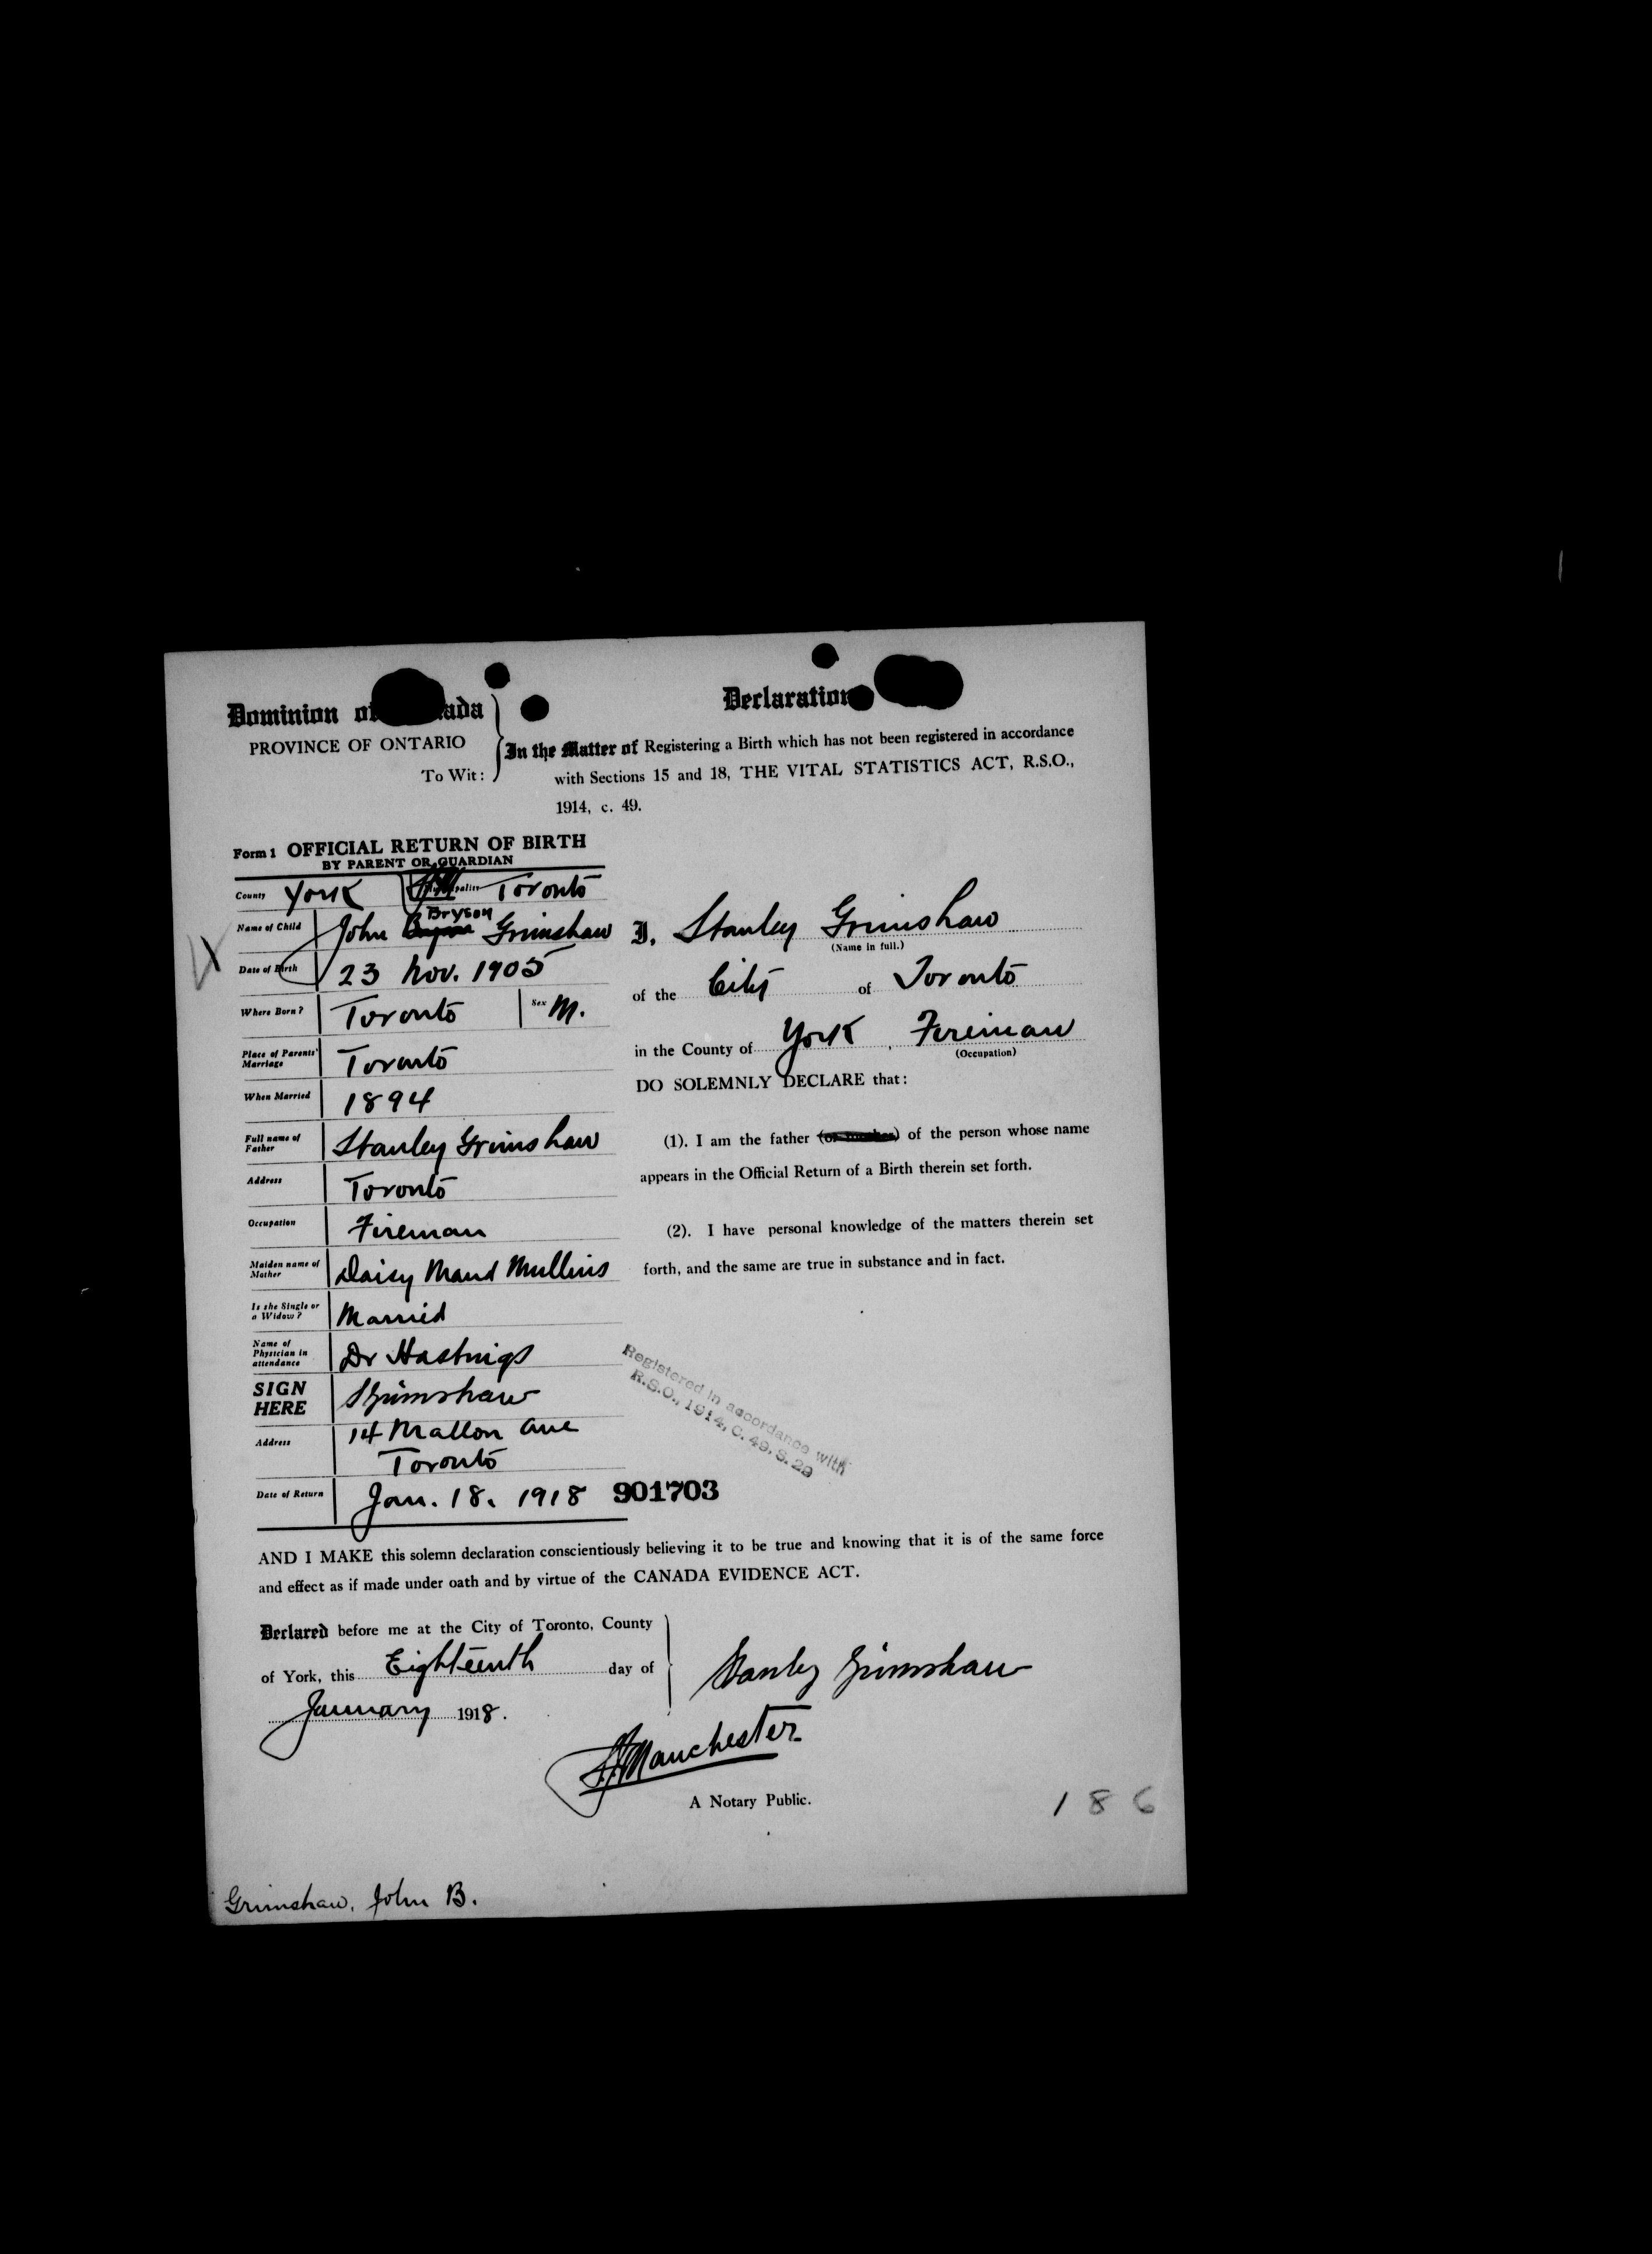 Dominion of ada
PROVINCE OF ONTARIO
To Wit:
Declaration
In the Matter of Registering a Birth which has not been registered in accordance
with Sections 15 and 18, THE VITAL STATISTICS ACT, R.S.O.,
1914, c. 49.
Form 1 OFFICIAL RETURN OF BIRTH
BY PARENT OR GUARDIAN
County York Toronto
Bryson
Name of Child John Grimshaw
Date of Birth 23 Nov. 1905
Where Born? Toronto Sex M.
Place of Parents' Marriage Toronto
When Married 1894
Full name of Father Stanley Grimshaw
Address Toronto
Occupation Fireman
Maiden name of Mother Daisy Maud Mullins
Is she Single or a Widow? Married
Name of Physician in attendance Dr Hastings
SIGN HERE SGrimshaw
Address 14 Mallon Ave
Toronto
Date of Return Jan. 18. 1918
901703
I, Stanley Grimshaw
(Name in full.)
of the City of Toronto
in the County of York, Fireman
(Occupation)
DO SOLEMNLY DECLARE that:
(1). I am the father (or mother) of the person whose name
appears in the Official Return of a Birth therein set forth.
(2). I have personal knowledge of the matters therein set
forth, and the same are true in substance and in fact.
Registered in accordance with
R.S.O., 1914, C. 49, S. 29
AND I MAKE this solemn declaration conscientiously believing it to be true and knowing that it is of the same force
and effect as if made under oath and by virtue of the CANADA EVIDENCE ACT.
Declared before me at the City of Toronto, County
of York, this Eighteenth day of
January 1918.
Stanley Grimshaw
Manchester
A Notary Public.
186
Grimshaw, John B.